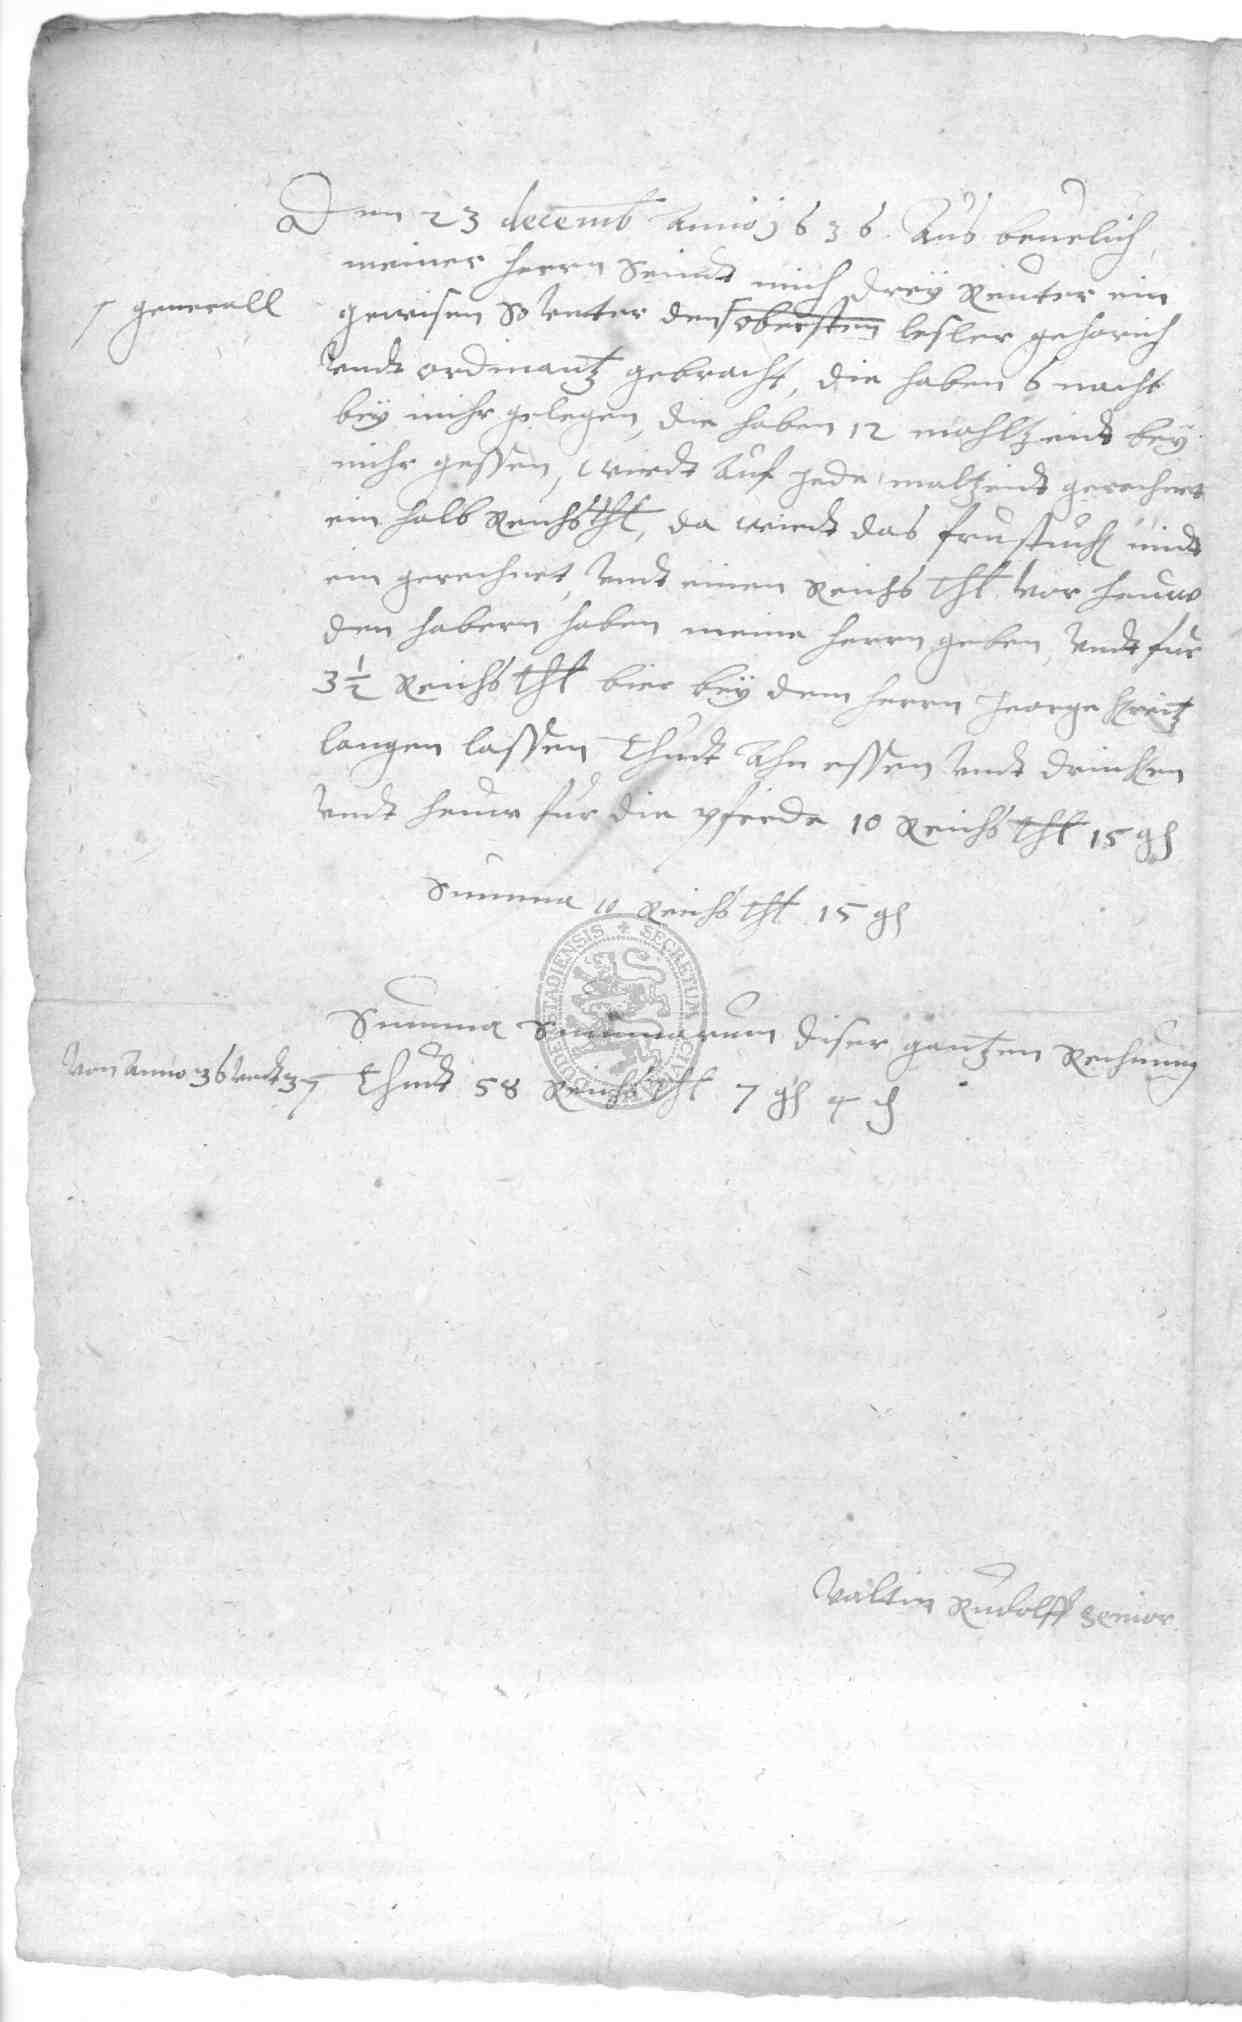 Den 23 decemb Anno 1636. Aus beuelich
meiner herrn Seindt mich drey Reuter ein
⌈ generall
gewisen So Vnter den ⌈obersten lesler gehorich
Vndt ordinantz gebracht, die haben 6 nacht
bey mihr gelegen, die haben 12 mahltzeidt bey
mihr gessen, wirdt Auf jede maltzeidt gerechnet
ein halb Reichsthl, da wirdt das frustuck midt
ein gerechnet, Vndt einen Reichs thl. vor heuw
den habern haben meine herrn geben, Vndt fur
3½ Reichs thl bier bey dem herrn Jeorge
langen lassen Thudt Ahn essen Vndt drincken
Vndt heuw fur die pferde 10 Reichs thl 15 gl
Summa 10 Reichs thl 15 gl
SECRETUM CIVI DUDERSTADIENSIS
Summa Summarum diser gantzen Rechnung
Von Anno 36 Vndt 37 Thudt 58 Reichs thl 7 gl 4 d
Valtin Rudolff Senior